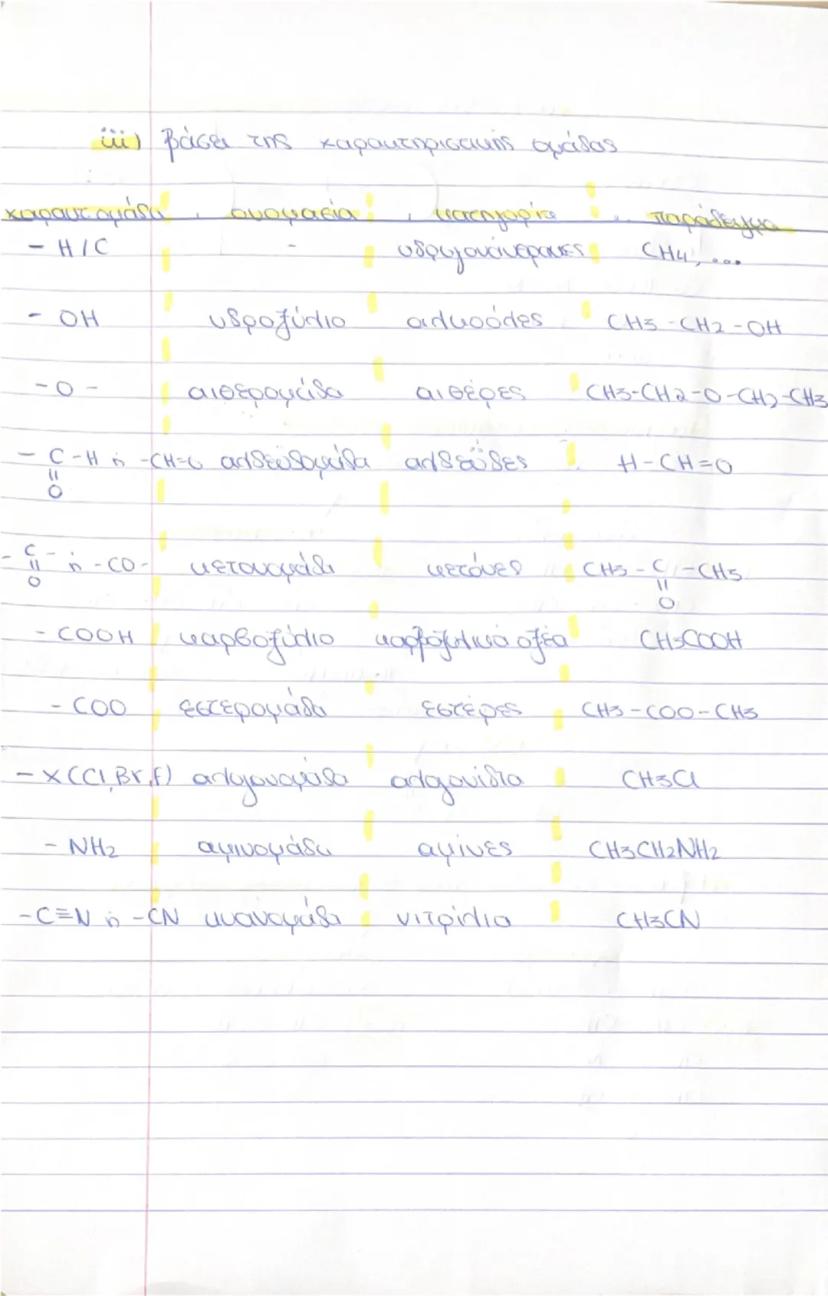 iii) βάσει της χαρακτηριστικής ομάδας
χαρακτ. ομάδα , ονομασία , κατηγορία , παράδειγμα
- H/C - υδρογονάνθρακες CH4, ...
- OH υδροξύλιο αλκοόλες CH3 - CH2 - OH
- O - αιθερομάδα αιθέρες CH3-CH2-O-CH2-CH3
- C - H ή -CH=O αλδεϋδομάδα αλδεΰδες H - CH=O
||
O
- C - ή - CO - κετονομάδα κετόνες CH3 - C - CH3
|| ||
O O
- COOH καρβοξύλιο καρβοξυλικά οξέα CH3COOH
- COO εστερομάδα εστέρες CH3 - COO - CH3
- X (Cl, Br, F) αλογονομάδα αλογονίδια CH3Cl
- NH2 αμινομάδα αμίνες CH3CH2NH2
- C≡N ή - CN κυανομάδα νιτρίλια CH3CN